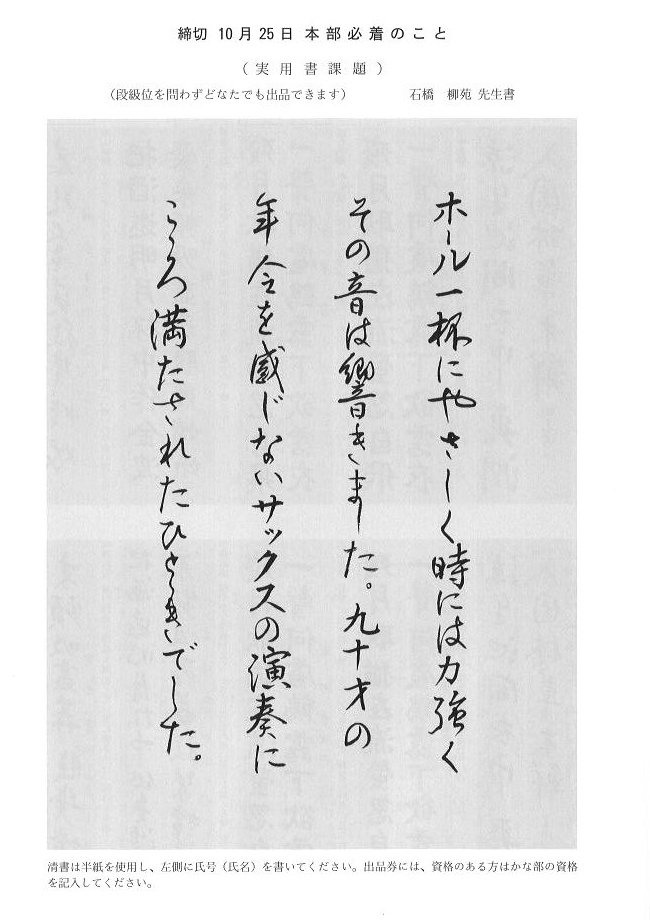 締切 10月25日 本部必着のこと
（実用書課題）
（段級位を問わずどなたでも出品できます） 石橋 柳苑 先生書
ホール一杯にやさしく時には力強く
その音は響きました。九十才の
年令を感じないサックスの演奏に
こゝろ満たされたひとゝきでした。
清書は半紙を使用し、左側に氏号（氏名）を書いてください。出品券には、資格のある方はかな部の資格
を記入してください。